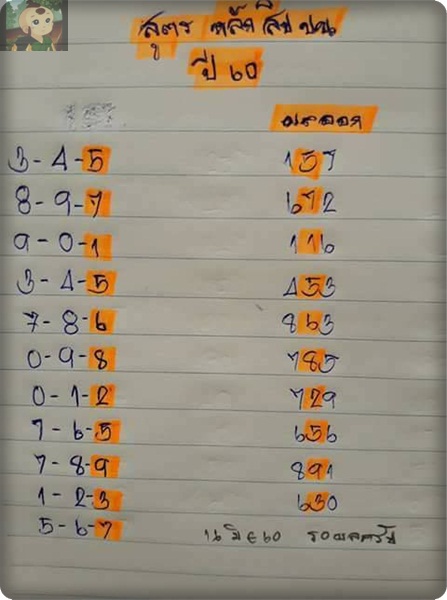 สูตร หลักสิบบน
ปี 60
ผลออก
3-4-5 157
8-9-7 672
9-0-1 116
3-4-5 453
7-8-6 863
0-9-8 785
0-1-2 729
7-6-5 656
7-8-9 891
1-2-3 630
5-6-7 16 มิย 60 รอผลครับ